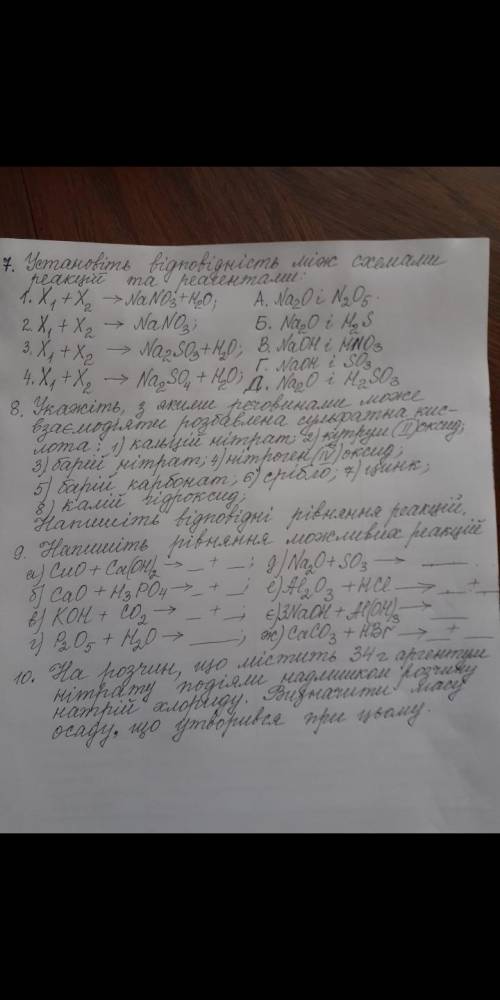 7. Установіть відповідність між схемами
реакцій та реагентами:
1. X₁ + X₂ → NaNO₃ + H₂O; А. Na₂O і N₂O₅.
2. X₁ + X₂ → NaNO₃; Б. Na₂O і H₂S
3. X₁ + X₂ → Na₂SO₃ + H₂O; В. NaOH і HNO₃
Г. NaOH і SO₃
4. X₁ + X₂ → Na₂SO₄ + H₂O; Д. Na₂O і H₂SO₃
8. Укажіть, з якими речовинами може
взаємодіяти розбавлена сульфатна кис-
лота: 1) кальцій нітрат; 2) купрум (II) оксид;
3) барій нітрат; 4) нітроген (IV) оксид;
5) барій карбонат; 6) срібло; 7) цинк;
8) калій гідроксид;
Напишіть відповідні рівняння реакцій.
9. Напишіть рівняння можливих реакцій
а) CuO + Ca(OH)₂ → _ + _; д) Na₂O + SO₃ → ___
б) CaO + H₃PO₄ → _ + _; е) Al₂O₃ + HCl → _ + _
в) KOH + CO₂ → _ + _; є) 3NaOH + Al(OH)₃ → ___
г) P₂O₅ + H₂O → ___; ж) CaCO₃ + HBr → _ + _
10. На розчин, що містить 34 г аргентум
нітрату подіяли надлишком розчину
натрій хлориду. Визначити масу
осаду, що утворився при цьому.